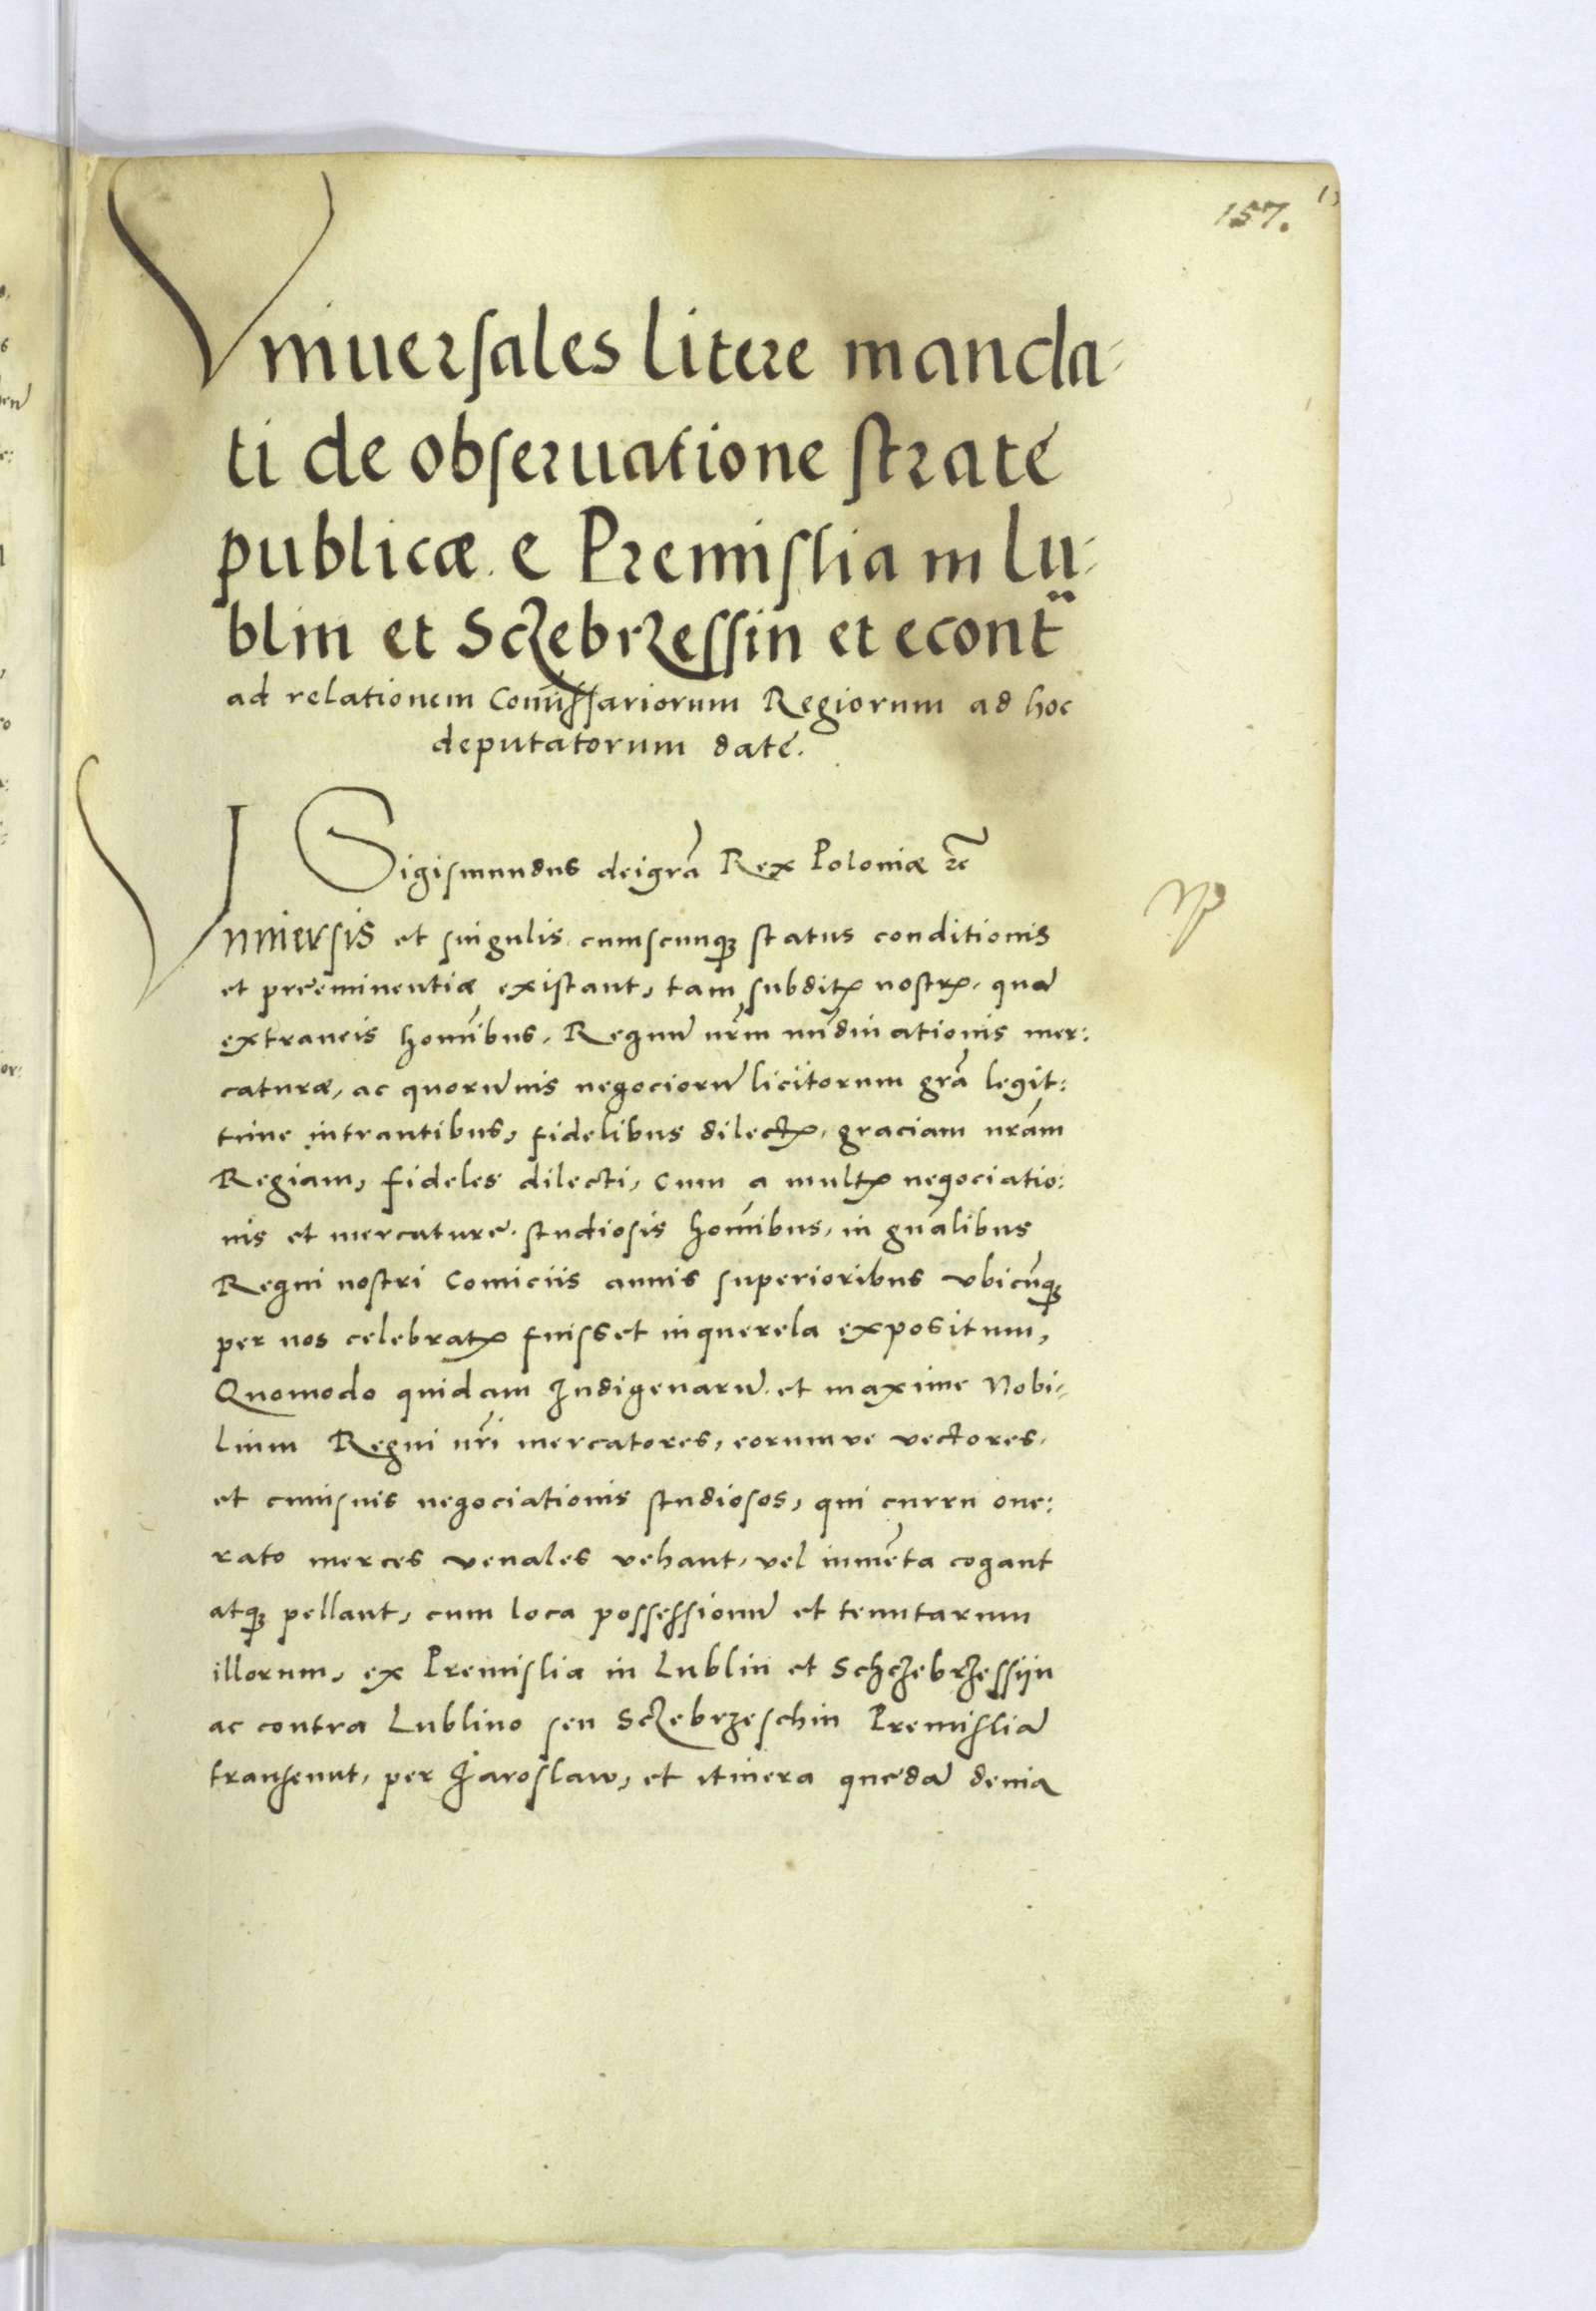 157.
Vniuersales litere manda-
ti de obseruatione stratę
publicæ e Premislia in Lu-
blin et Sczebrzessin et econẗ
ad relationem Com̃issariorum Regiorum ad hoc
deputatorum datę.
Sigismundus dei gr̃a Rex Poloniæ ꝛc̃
Vniuersis et singulis cuiuscunqꝫ status conditionis
et preeminentiæ existant, tam subditꝭ nostrꝭ, quã
extraneis homĩbus, Regnũ nr̃m nũdinationis mer:
caturæ, ac quorũuis negociorũ licitorum gr̃a legit:
time intrantibus, fidelibus dilectꝭ, graciam nr̃am
Regiam, fideles dilecti, Cum a multꝭ negociatio:
nis et mercaturę studiosis homĩbus, in gñalibus
Regni nostri Comiciis annis superioribus vbicũqꝫ
per nos celebratꝭ fuisset in querela expositum,
Quomodo quidam Indigenarũ et maxime Nobi-
lium Regni nr̃i mercatores, eorumve vectores,
et cuiusuis negociationis studiosos, qui curru one:
rato merces venales vehant, vel iumẽta cogant
atqꝫ pellant, cum loca possessionũ et tenutarum
illorum, ex Premislia in Lublin et Schczebrzessyn
ac contra Lublino seu Sczebrzeschin Premisliã
transeunt, per Jaroslaw, et itinera quędã deuia